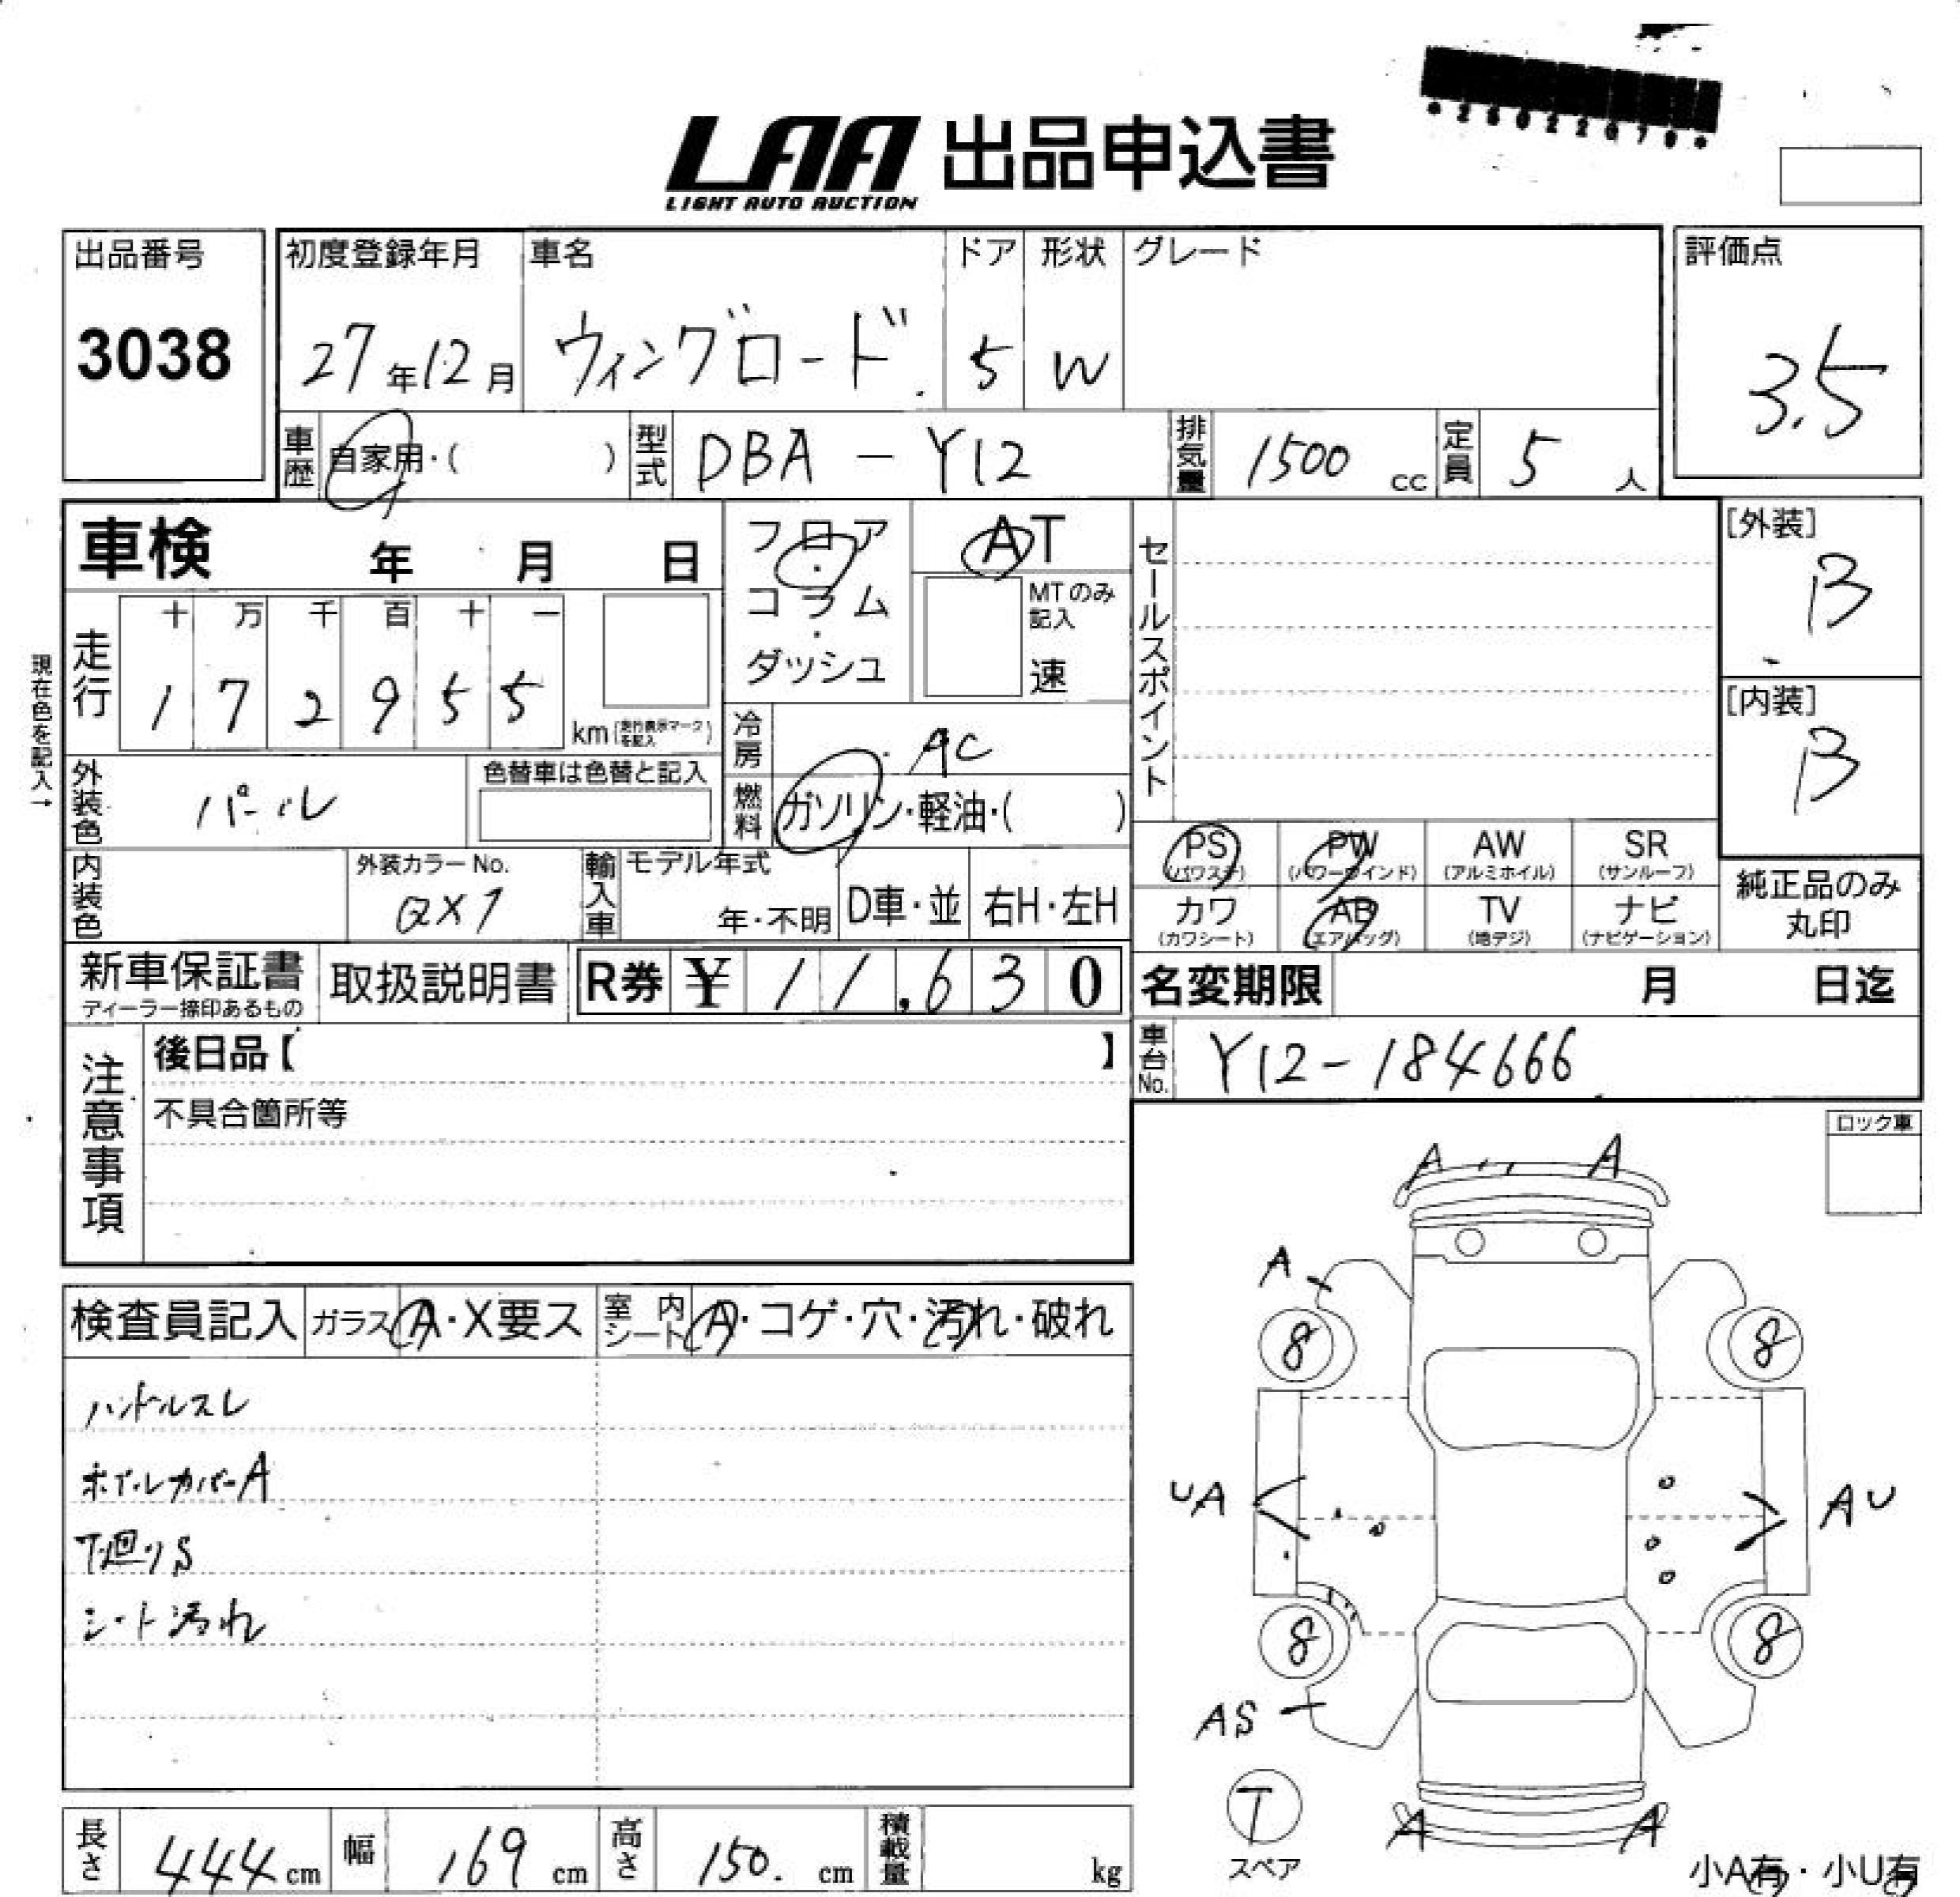 *25022070*
LAA 出品申込書
LIGHT AUTO AUCTION
出品番号 初度登録年月 車名 ドア 形状 グレード 評価点
3038 27年12月 ウィングロード 5 W 3.5
車歴 自家用・( ) 型式 DBA-Y12 排気量 1500 cc 定員 5 人
車検 年 月 日 フロア・コラム・ダッシュ AT セールスポイント [外装] B
MTのみ記入 速
現在色を記入→
走行 十 万 千 百 十 一
1 7 2 9 5 5 km (走行表示マークを記入)
[内装] B
冷房 AC
外装色 パール 色替車は色替と記入 燃料 ガソリン・軽油・( )
PS (パワステ) PW (パワーウインド) AW (アルミホイル) SR (サンルーフ)
内装色 外装カラーNo. QX1 輸入車 モデル年式 年・不明 D車・並 右H・左H
カワ (カワシート) AB (エアバッグ) TV (地デジ) ナビ (ナビゲーション) 純正品のみ丸印
新車保証書 取扱説明書 R券 ¥ 11,630 名変期限 月 日迄
ディーラー捺印あるもの
注意事項 後日品【 】 車台No. Y12-184666
不具合箇所等
ロック車
A A
A
検査員記入 ガラス A・X要ス 室内シート A・コゲ・穴・汚れ・破れ
8 8
ハンドルスレ
ホイールカバーA
UA AU
下廻りS
シート汚れ
8 8
AS
T
スペア
A A
長さ 444 cm 幅 169 cm 高さ 150. cm 積載量 kg
小A有・小U有